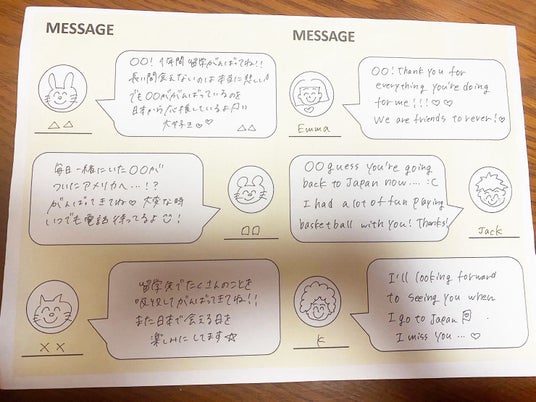 MESSAGE
○○! 1年間 留学がんばってね!!
長い間会えないのは本当に悲しい
でも○○ががんばっているのを
日本から応援しているよ
大好き♡♡
△△
△△
毎日一緒にいた○○が
ついにアメリカへ…!?
がんばってきてね♡ 大変な時
いつでも電話待ってるよ☺!
□□
留学先でたくさんのことを
吸収してがんばってきてね!!
また日本で会える日を
楽しみにしてます☆
××
MESSAGE
○○! Thank you for
everything you're doing
for me!!! ♡♡
We are friends forever! ♡
Emma
○○ guess you're going
back to Japan now.... :C
I had a lot of fun playing
basketball with you! Thanks!
Jack
I'll looking forward
to seeing you when
I go to Japan
I miss you ... ♡
K